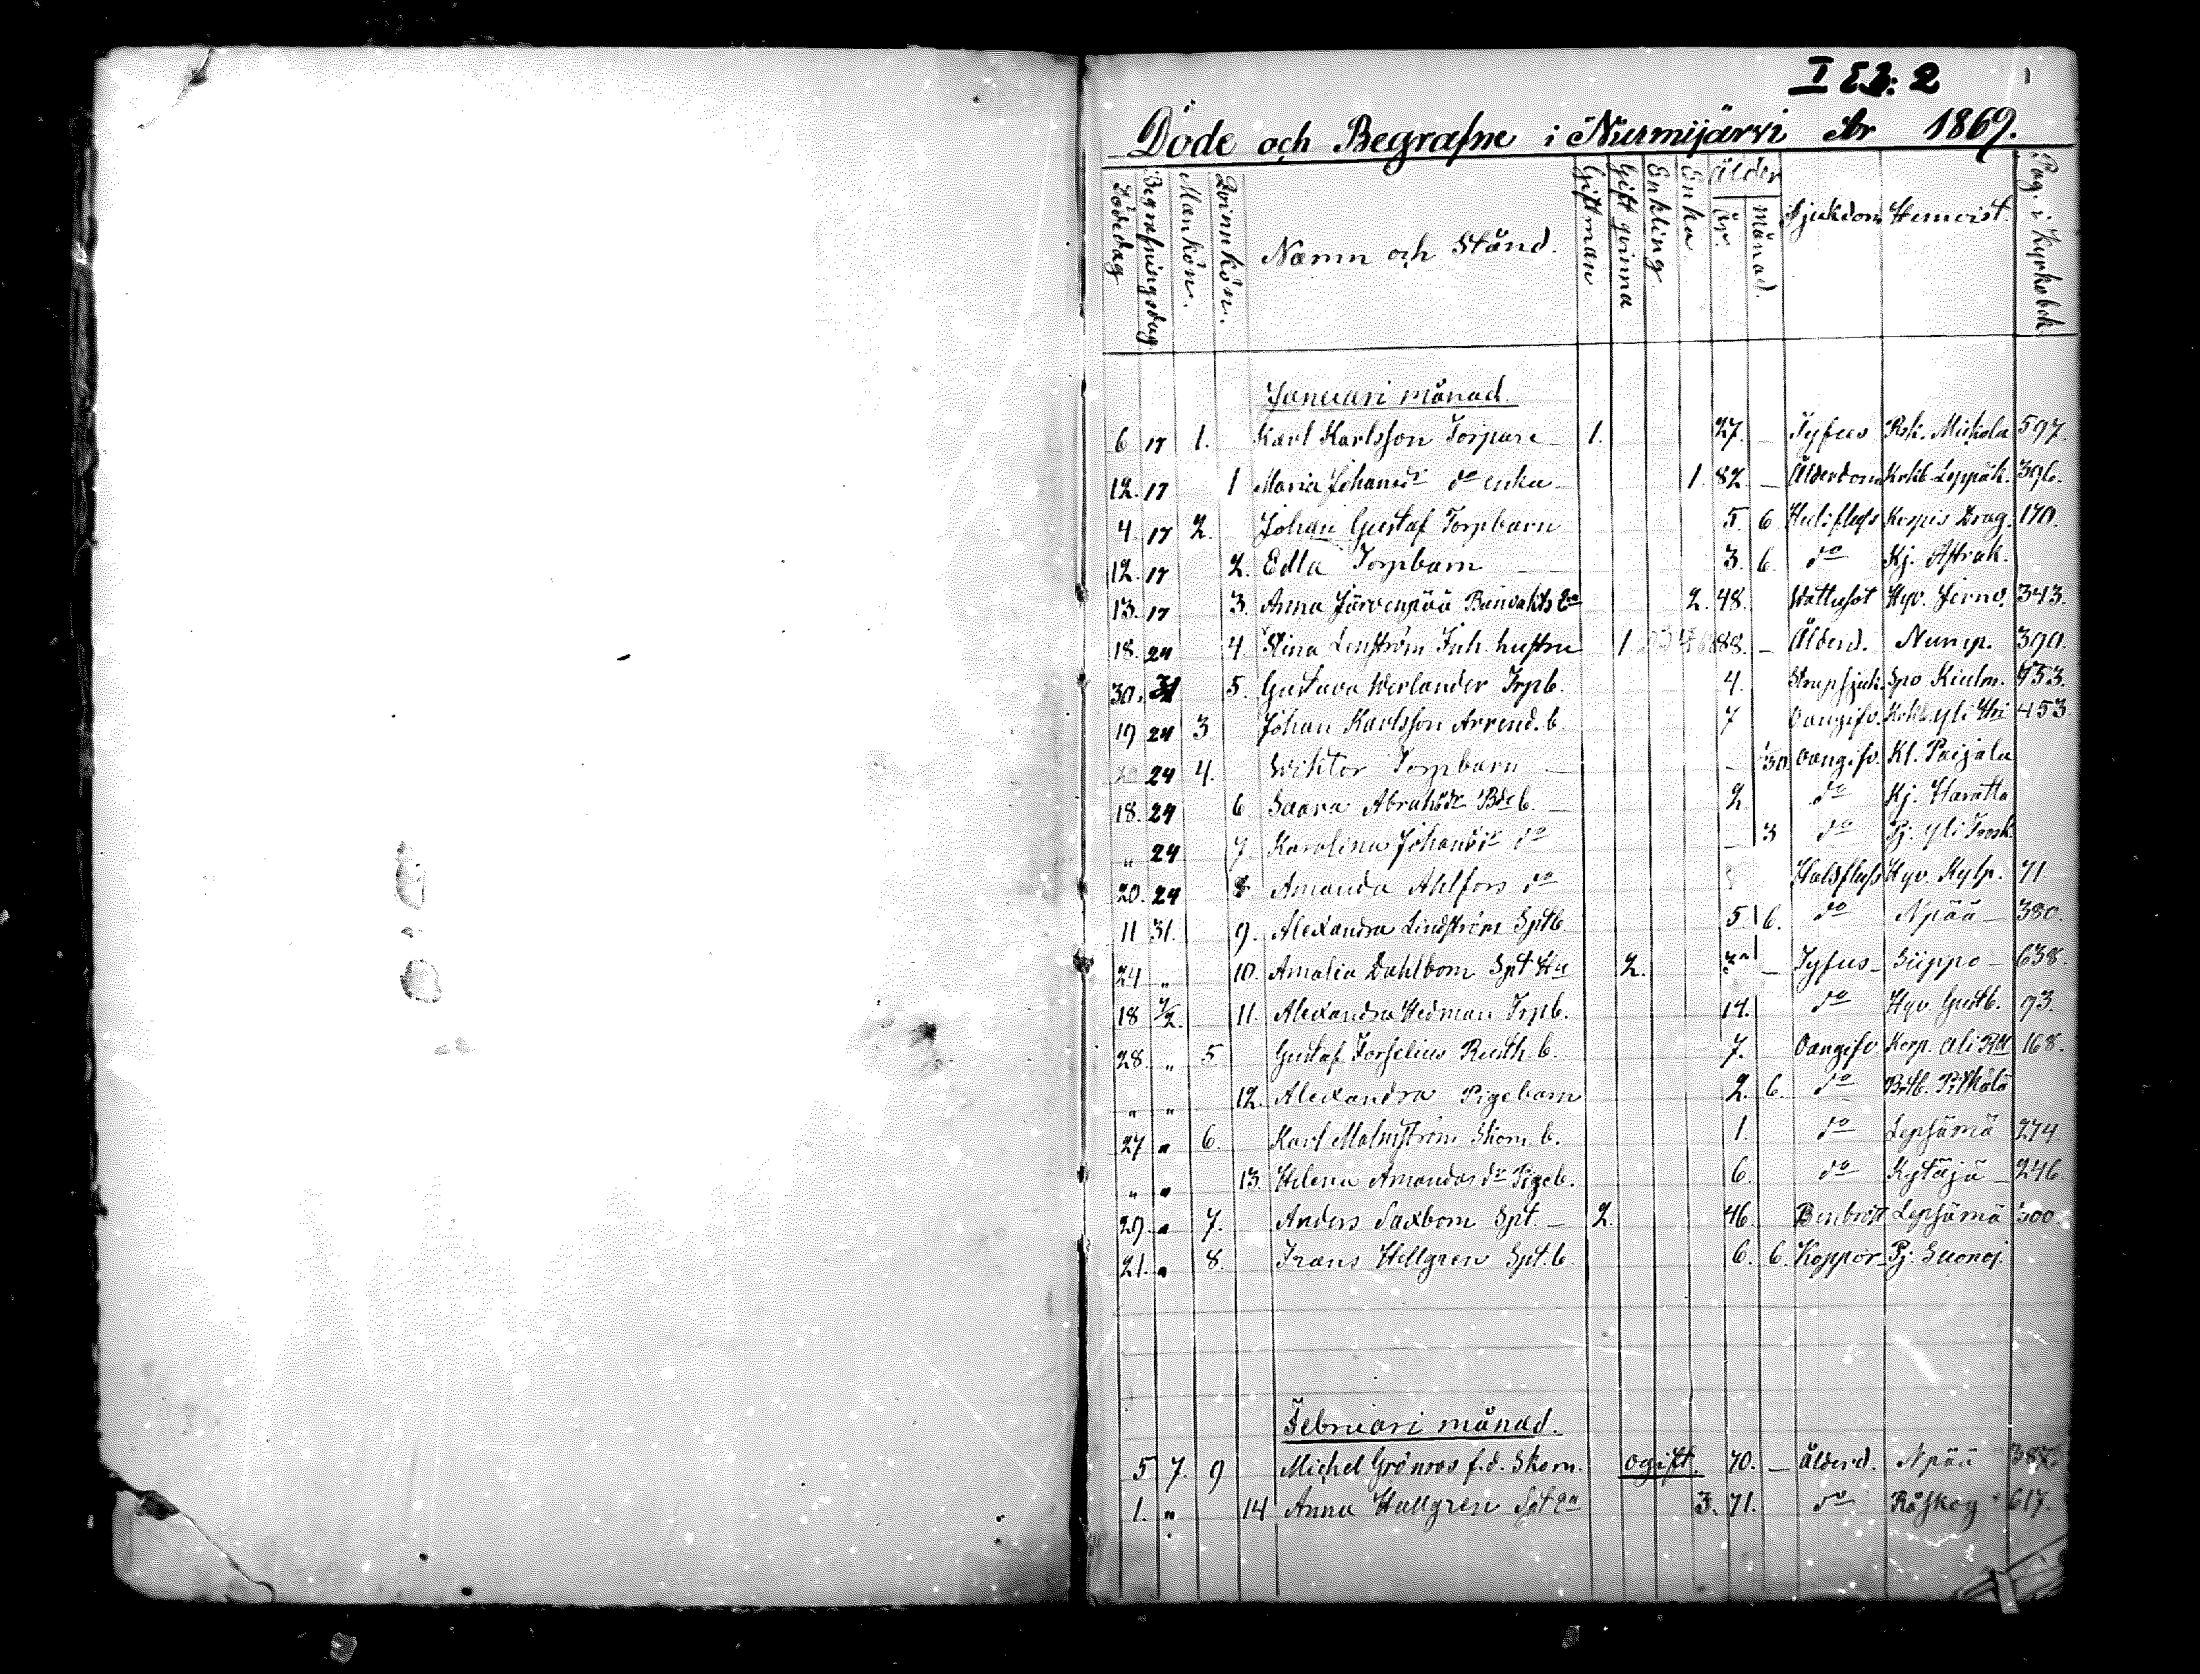 I E3: 2
1
Döde och Begrafne i Nurmijärvi År 1869.
Dödedag Begrafningsdag Mankön. Qvinnkön. Namn och Stånd. Gift man Gift qvinna Enkling Enka Ålder år. månad. Sjukdom Hemvist. Pag. i Kyrkobok
Januari månad.
6 17 1. Karl Karlsson Torpare 1. 27. — Tyfus Rsk. Mickola 597.
12. 17 1 Maria Johansdr do enka 1. 82 — Ålderdom Krkb Leppäk. 396.
4. 17 2. Johan Gustaf Torpbarn 5. 6 Kerpis Drag. 170.
12. 17 2. Edla Torpbarn 3. 6. do Kj.
13. 17 3. Anna Järvenpää 2. 48. Wattusot Hyv. 343.
18. 24 4. Stina Lenström Inh. hustru 1 88. — Ålderd. Nump. 390.
30. 31 5. Gustava Werlander Trpb. 4. Spo 453.
19 24 3 Johan Karlsson Arrend. b. 7 Oangifv. Krkb. Yli 453
24 4. Wiktor Torpbarn — 30 Oangifv. Kl. Paijala
18. 24 6 Saara Abrahsdr 2 do Kj. Haratta
" 24 7. Karolina Johansdr do — 3 do Pj. Yli
20. 24 8 Amanda Ahlfors do Halsfluss Hyv. 71
11 31. 9. Alexandra Lindström Sptb 5 6. do Npää — 380.
24 " 10. Amalia Dahlbom Spt Hu 2. — Tyfus — Siippo — 638.
18 7/2. 11. Alexandra Hedman Trpb. 14. do Hyv. 93.
28. " 5 Gustaf Forselius Rusth. b. 7. Oangifv Kerp. Ali 168.
" " 12. Alexandra Pigebarn 2. 6. do Pitkälä
27 " 6. Karl Malmström Skom. b. 1. do Lepsämä 274
" " 13. Helena Amandas dr Pigeb. 6. do Kytäjä — 246
29. " 7. Anders Saxbom Spt. — 2. 46. Lepsämä 300.
21. " 8. Frans Hellgren Spt. b. 6. 6. Koppor Pj. Suonoj.
Februari månad.
5 7. 9 Michel Grönroos f.d. Skom. ogift. 70. — Ålderd. Npää 387.
1. " 14 Anna Hallgren Spt Ea 3. 71. do Röskog 617.